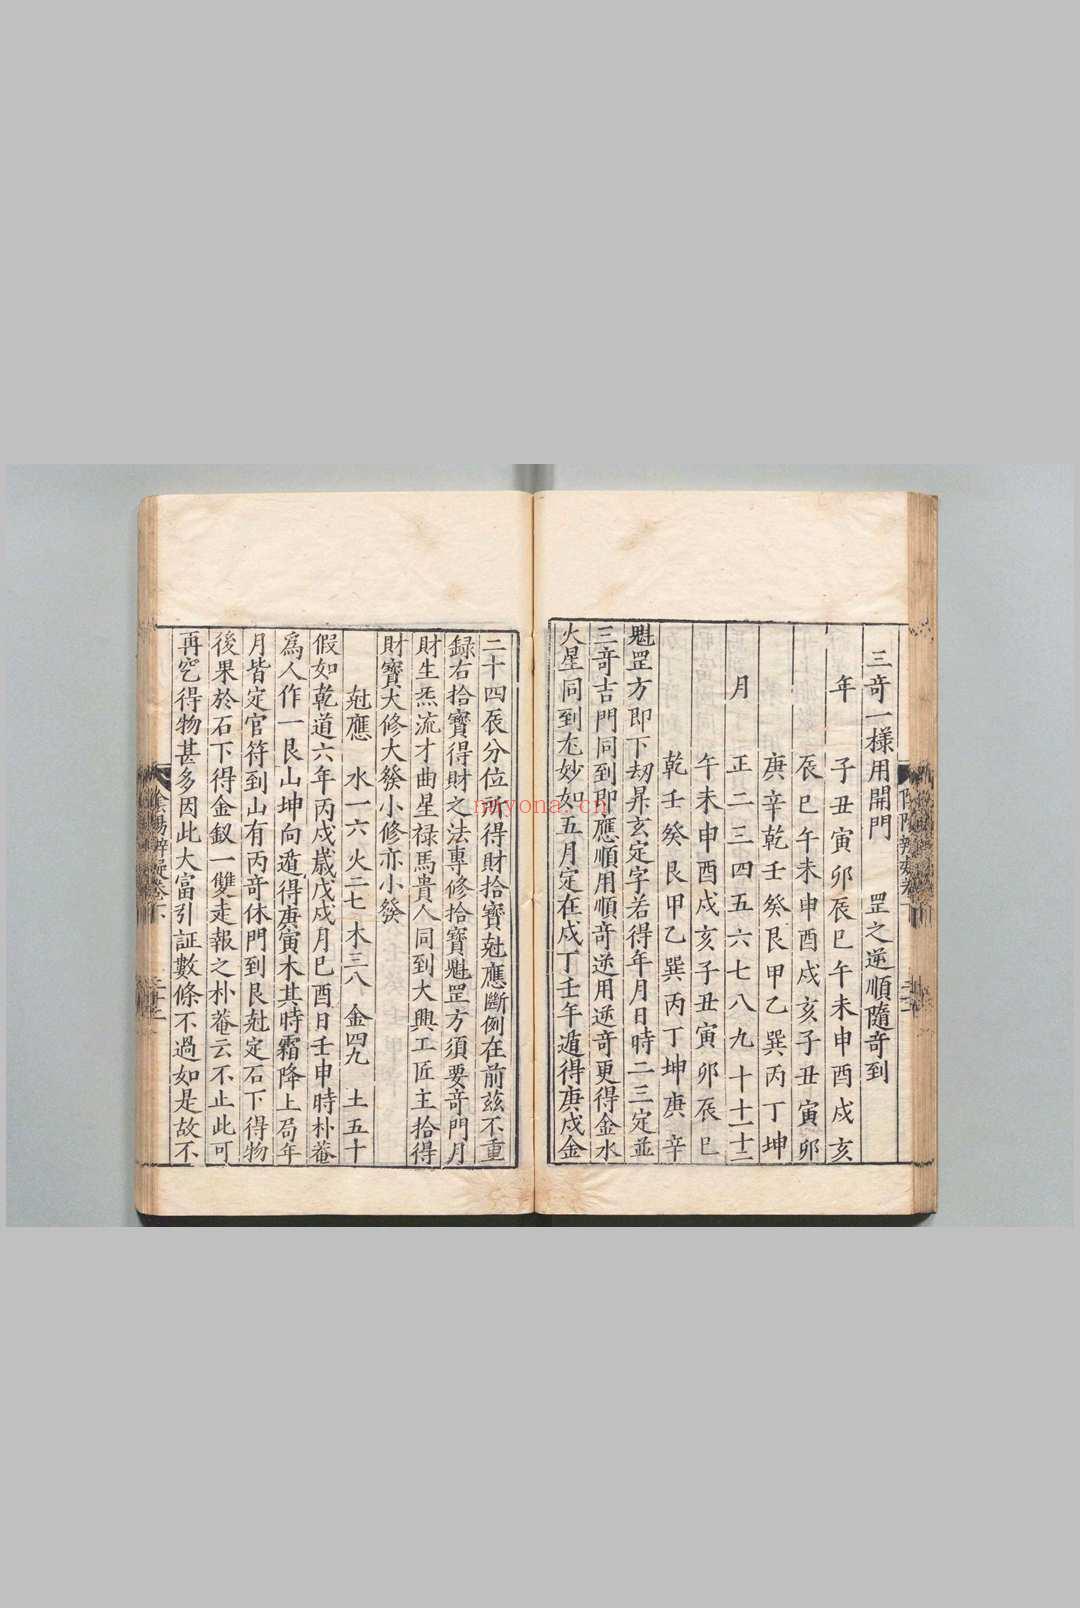 三奇一樣用開門 罡之逆順隨奇到
年 子丑寅卯辰巳午未申酉戌亥
辰巳午未申酉戌亥子丑寅卯
庚辛乾壬癸艮甲乙巽丙丁坤
月 正二三四五六七八九十十一十二
午未申酉戌亥子丑寅卯辰巳
乾壬癸艮甲乙巽丙丁坤庚辛
魁罡方即下刼昇玄定字若得年月日時二三定並
三奇吉門同到即應順用順奇逆用逆奇更得金水
火星同到尤妙如五月定在戌丁壬年遁得庚戌金
二十四辰分位所得財拾寶尅應斷例在前兹不重
録右拾寶得財之法專修拾寶魁罡方須要奇門月
財生炁流才曲星禄馬貴人同到大興工匠主拾得
財寶大修大發小修亦小發
尅應 水一六 火二七 木三八 金四九 土五十
假如乾道六年丙戌歲戊戌月巳酉日壬申時朴菴
爲人作一艮山坤向遁得庚寅木其時霜降上局年
月皆定官符到山有丙奇休門到艮尅定石下得物
後果於石下得金釵一雙走報之朴菴云不止此可
再穵得物甚多因此大富引証數條不過如是故不
陰陽辨疑卷下
nayona.cn